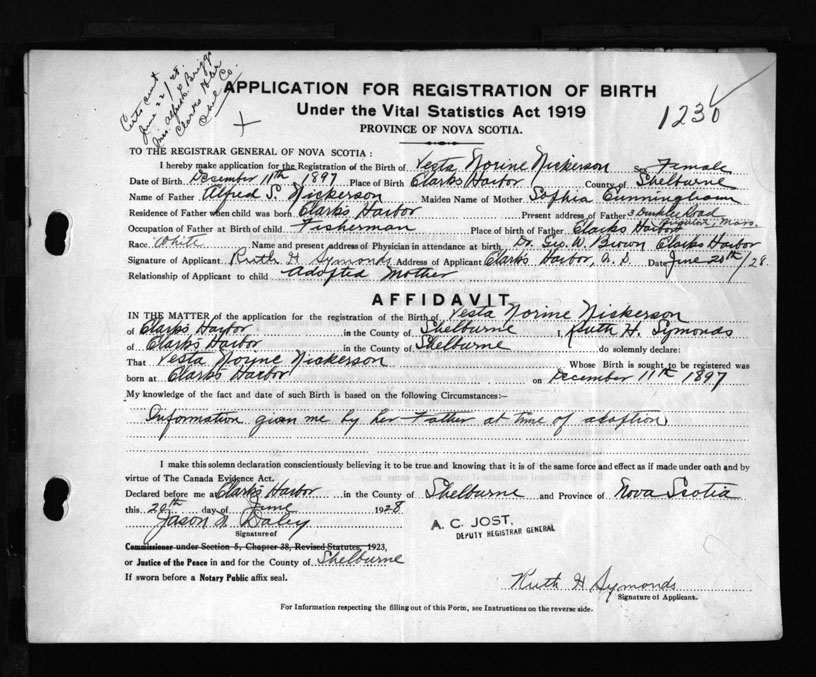 Certs sent
June 22/28.
Mrs. Alfred P. Briggs
Clarks Hbr
Shel. Co.
1230
APPLICATION FOR REGISTRATION OF BIRTH
Under the Vital Statistics Act 1919
PROVINCE OF NOVA SCOTIA.
TO THE REGISTRAR GENERAL OF NOVA SCOTIA :
I hereby make application for the Registration of the Birth of Vesta Norine Nickerson Sex Female
Date of Birth December 11th 1897 Place of Birth Clarks Harbor County of Shelburne
Name of Father Alfred S. Nickerson Maiden Name of Mother Sophia Cunningham
Residence of Father when child was born Clarks Harbor Present address of Father 3 Road Mass.
Occupation of Father at Birth of child Fisherman Place of birth of Father Clarks Harbor
Race White Name and present address of Physician in attendance at birth Dr. Geo. W. Brown, Clarks Harbor
Signature of Applicant Ruth H Symonds Address of Applicant Clarks Harbor, N.S. Date June 20th/28.
Relationship of Applicant to child adopted Mother
AFFIDAVIT
IN THE MATTER of the application for the registration of the Birth of Vesta Norine Nickerson
of Clarks Harbor in the County of Shelburne I, Ruth H. Symonds
of Clarks Harbor in the County of Shelburne do solemnly declare:
That Vesta Norine Nickerson Whose Birth is sought to be registered was
born at Clarks Harbor on December 11th 1897
My knowledge of the fact and date of such Birth is based on the following Circumstances:—
Information given me by her Father at time of adoption
I make this solemn declaration conscientiously believing it to be true and knowing that it is of the same force and effect as if made under oath and by
virtue of The Canada Evidence Act.
Declared before me at Clarks Harbor in the County of Shelburne and Province of Nova Scotia
this 20th day of June 1928
Jason N. Daley
Signature of
A. C. JOST,
DEPUTY REGISTRAR GENERAL
Commissioner under Section 5, Chapter 38, Revised Statutes, 1923,
or Justice of the Peace in and for the County of Shelburne
If sworn before a Notary Public affix seal.
Ruth H Symonds
Signature of Applicant.
For Information respecting the filling out of this Form, see Instructions on the reverse side.